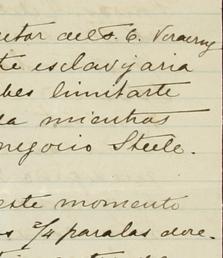 ctor del F. C. Veracruz
te esclavijaria
bes limitarte
la mientras
negocio Steele.
este momento
s 2/4 para las doce.